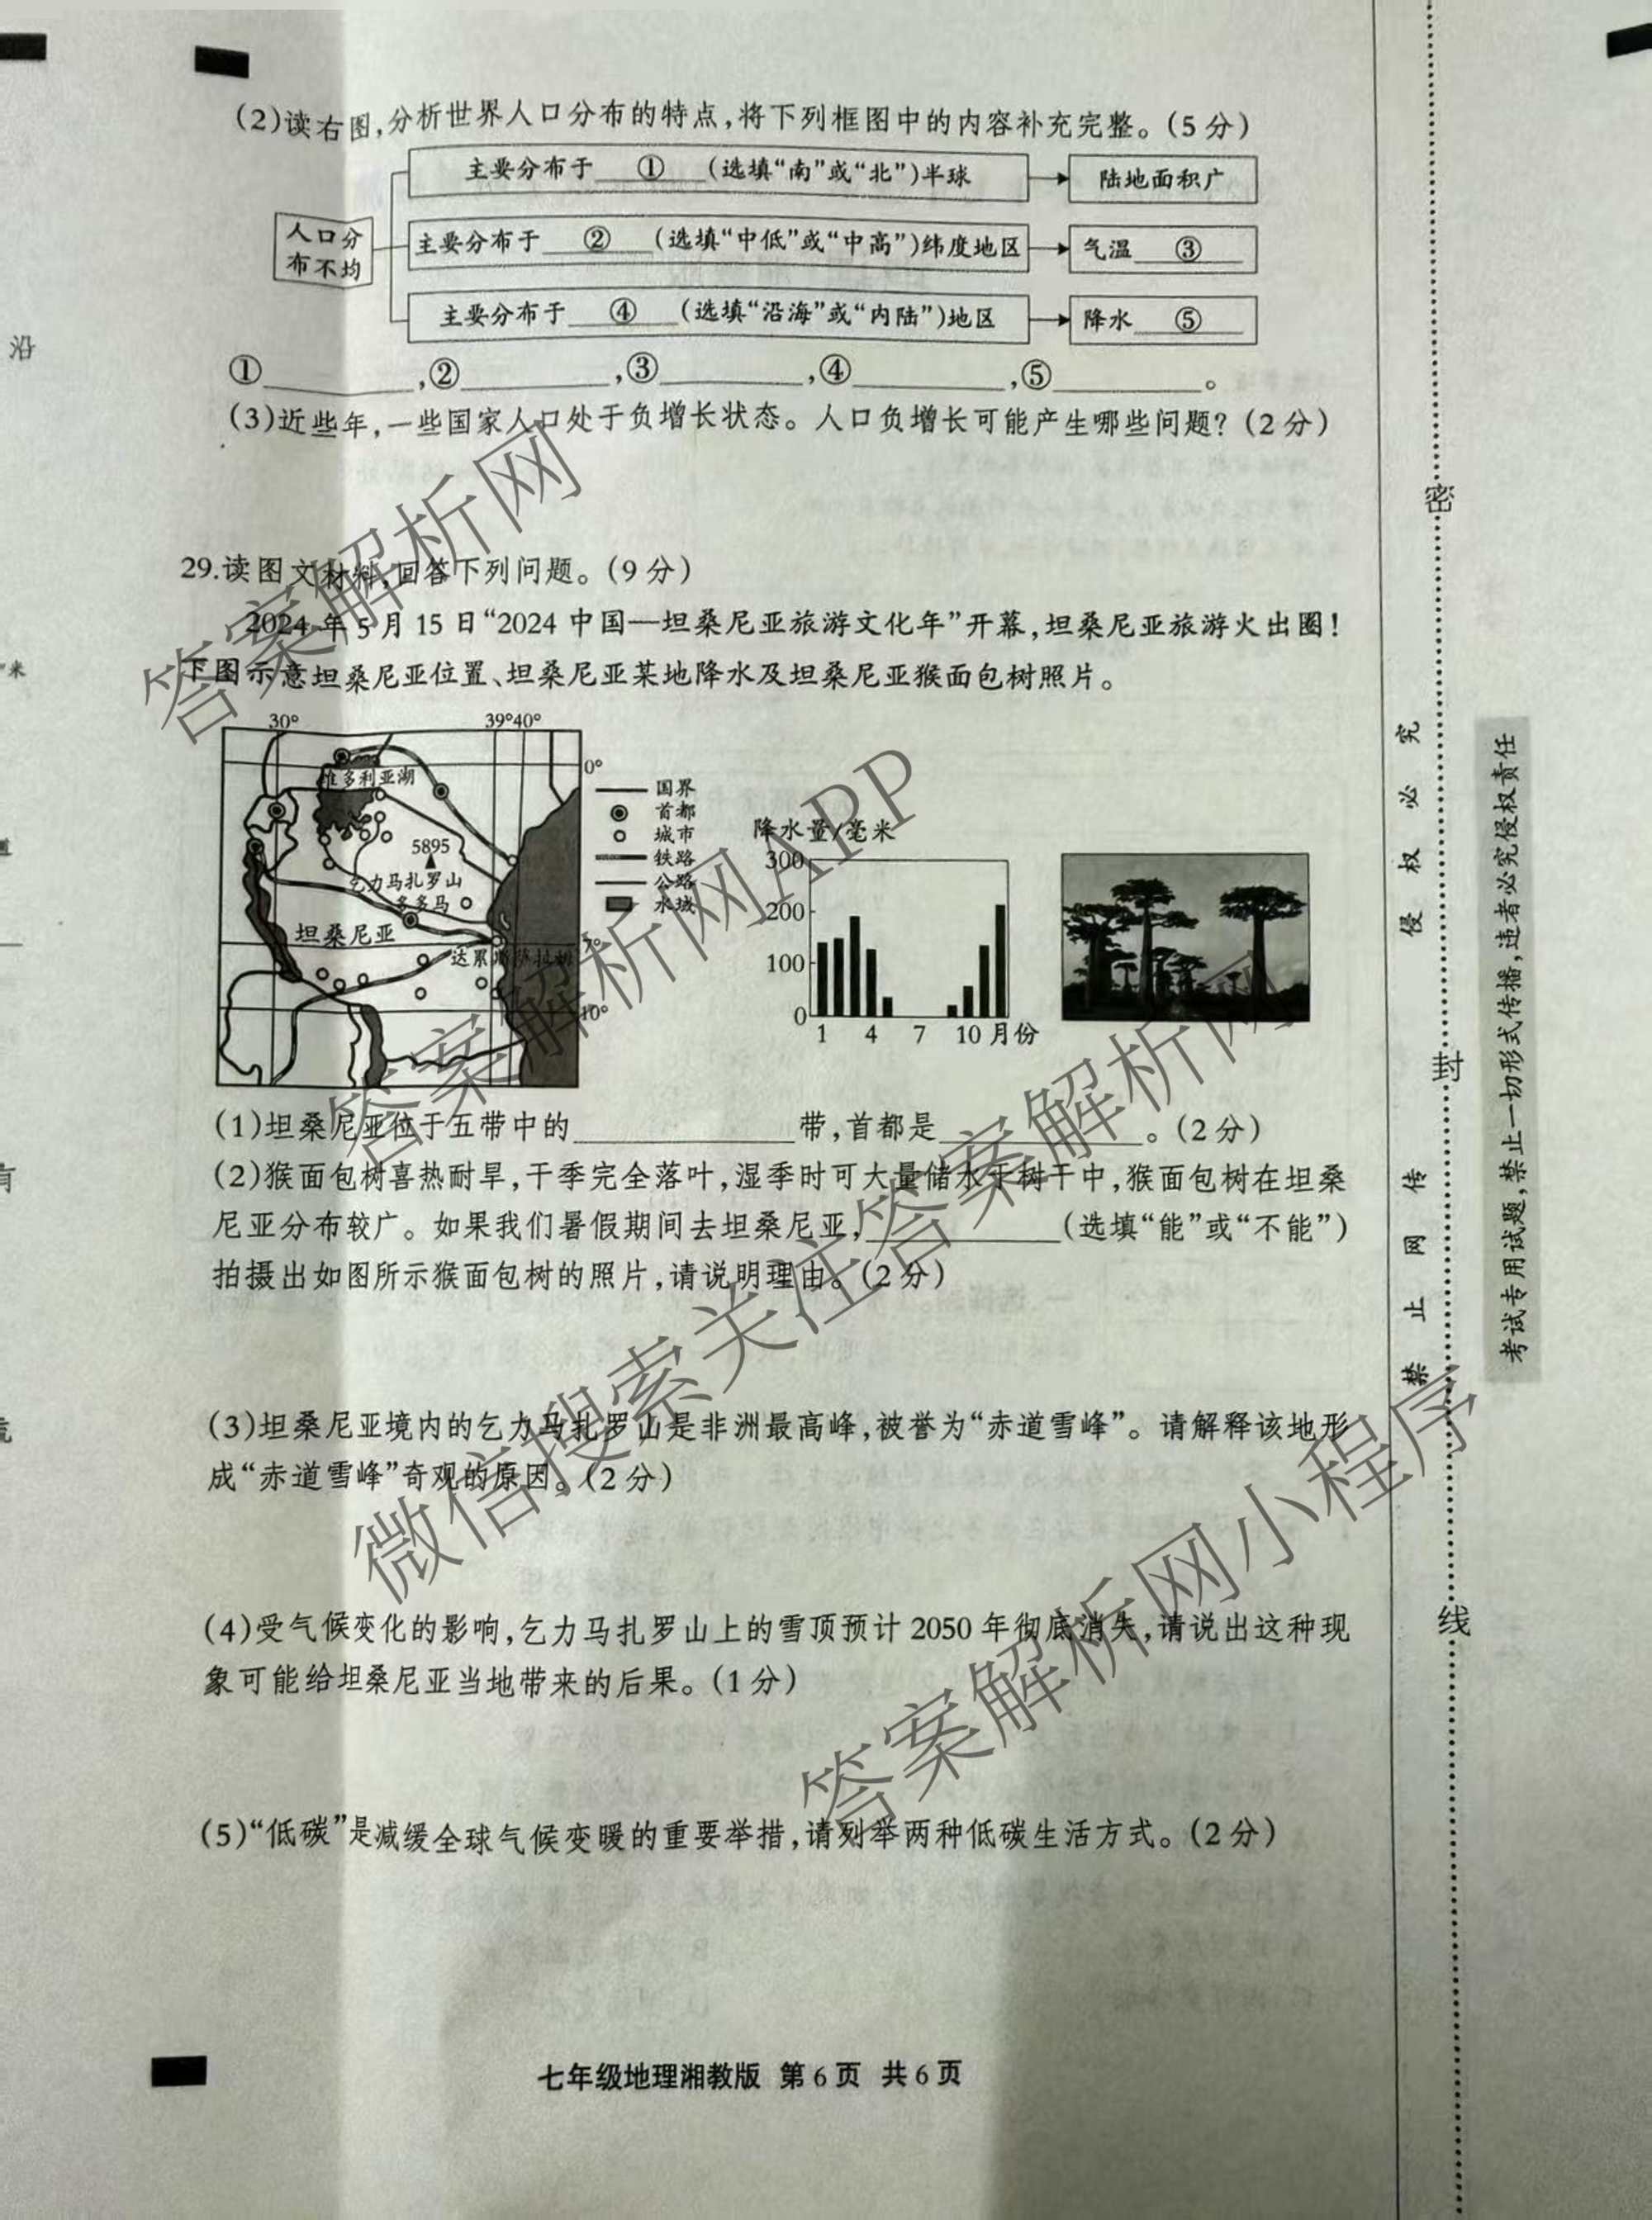 (2)读右图,分析世界人口分布的特点,将下列框图中的内容补充完整。(5分)
主要分布于 ① (选填“南”或“北”)半球
陆地面积广
人口分
布不均
主要分布于 ② (选填“中低”或“中高”)纬度地区
气温 ③
主要分布于 ④ (选填“沿海”或“内陆”)地区
降水 ⑤
沿
①________,②________,③________,④________,⑤________。
(3)近些年,一些国家人口处于负增长状态。人口负增长可能产生哪些问题?(2分)
29.读图文材料,回答下列问题。(9分)
2024年5月15日“2024中国—坦桑尼亚旅游文化年”开幕,坦桑尼亚旅游火出圈!
下图示意坦桑尼亚位置、坦桑尼亚某地降水及坦桑尼亚猴面包树照片。
米
30° 39°40°
0°
维多利亚湖
5895
乞力马扎罗山
多多马
坦桑尼亚
达累斯萨拉姆
7°
10°
国界
首都
城市
铁路
公路
水域
降水量/毫米
300
200
100
0
1 4 7 10 月份
(1)坦桑尼亚位于五带中的____________带,首都是____________。(2分)
(2)猴面包树喜热耐旱,干季完全落叶,湿季时可大量储水于树干中,猴面包树在坦桑
尼亚分布较广。如果我们暑假期间去坦桑尼亚,____________(选填“能”或“不能”)
拍摄出如图所示猴面包树的照片,请说明理由。(2分)
(3)坦桑尼亚境内的乞力马扎罗山是非洲最高峰,被誉为“赤道雪峰”。请解释该地形
成“赤道雪峰”奇观的原因。(2分)
(4)受气候变化的影响,乞力马扎罗山上的雪顶预计2050年彻底消失,请说出这种现
象可能给坦桑尼亚当地带来的后果。(1分)
(5)“低碳”是减缓全球气候变暖的重要举措,请列举两种低碳生活方式。(2分)
七年级地理湘教版 第6页 共6页
密
封
线
禁止网传 侵权必究
考试专用试题,禁止一切形式传播,违者必究侵权责任
答案解析网
答案解析网APP
微信搜索关注答案解析网
答案解析网小程序